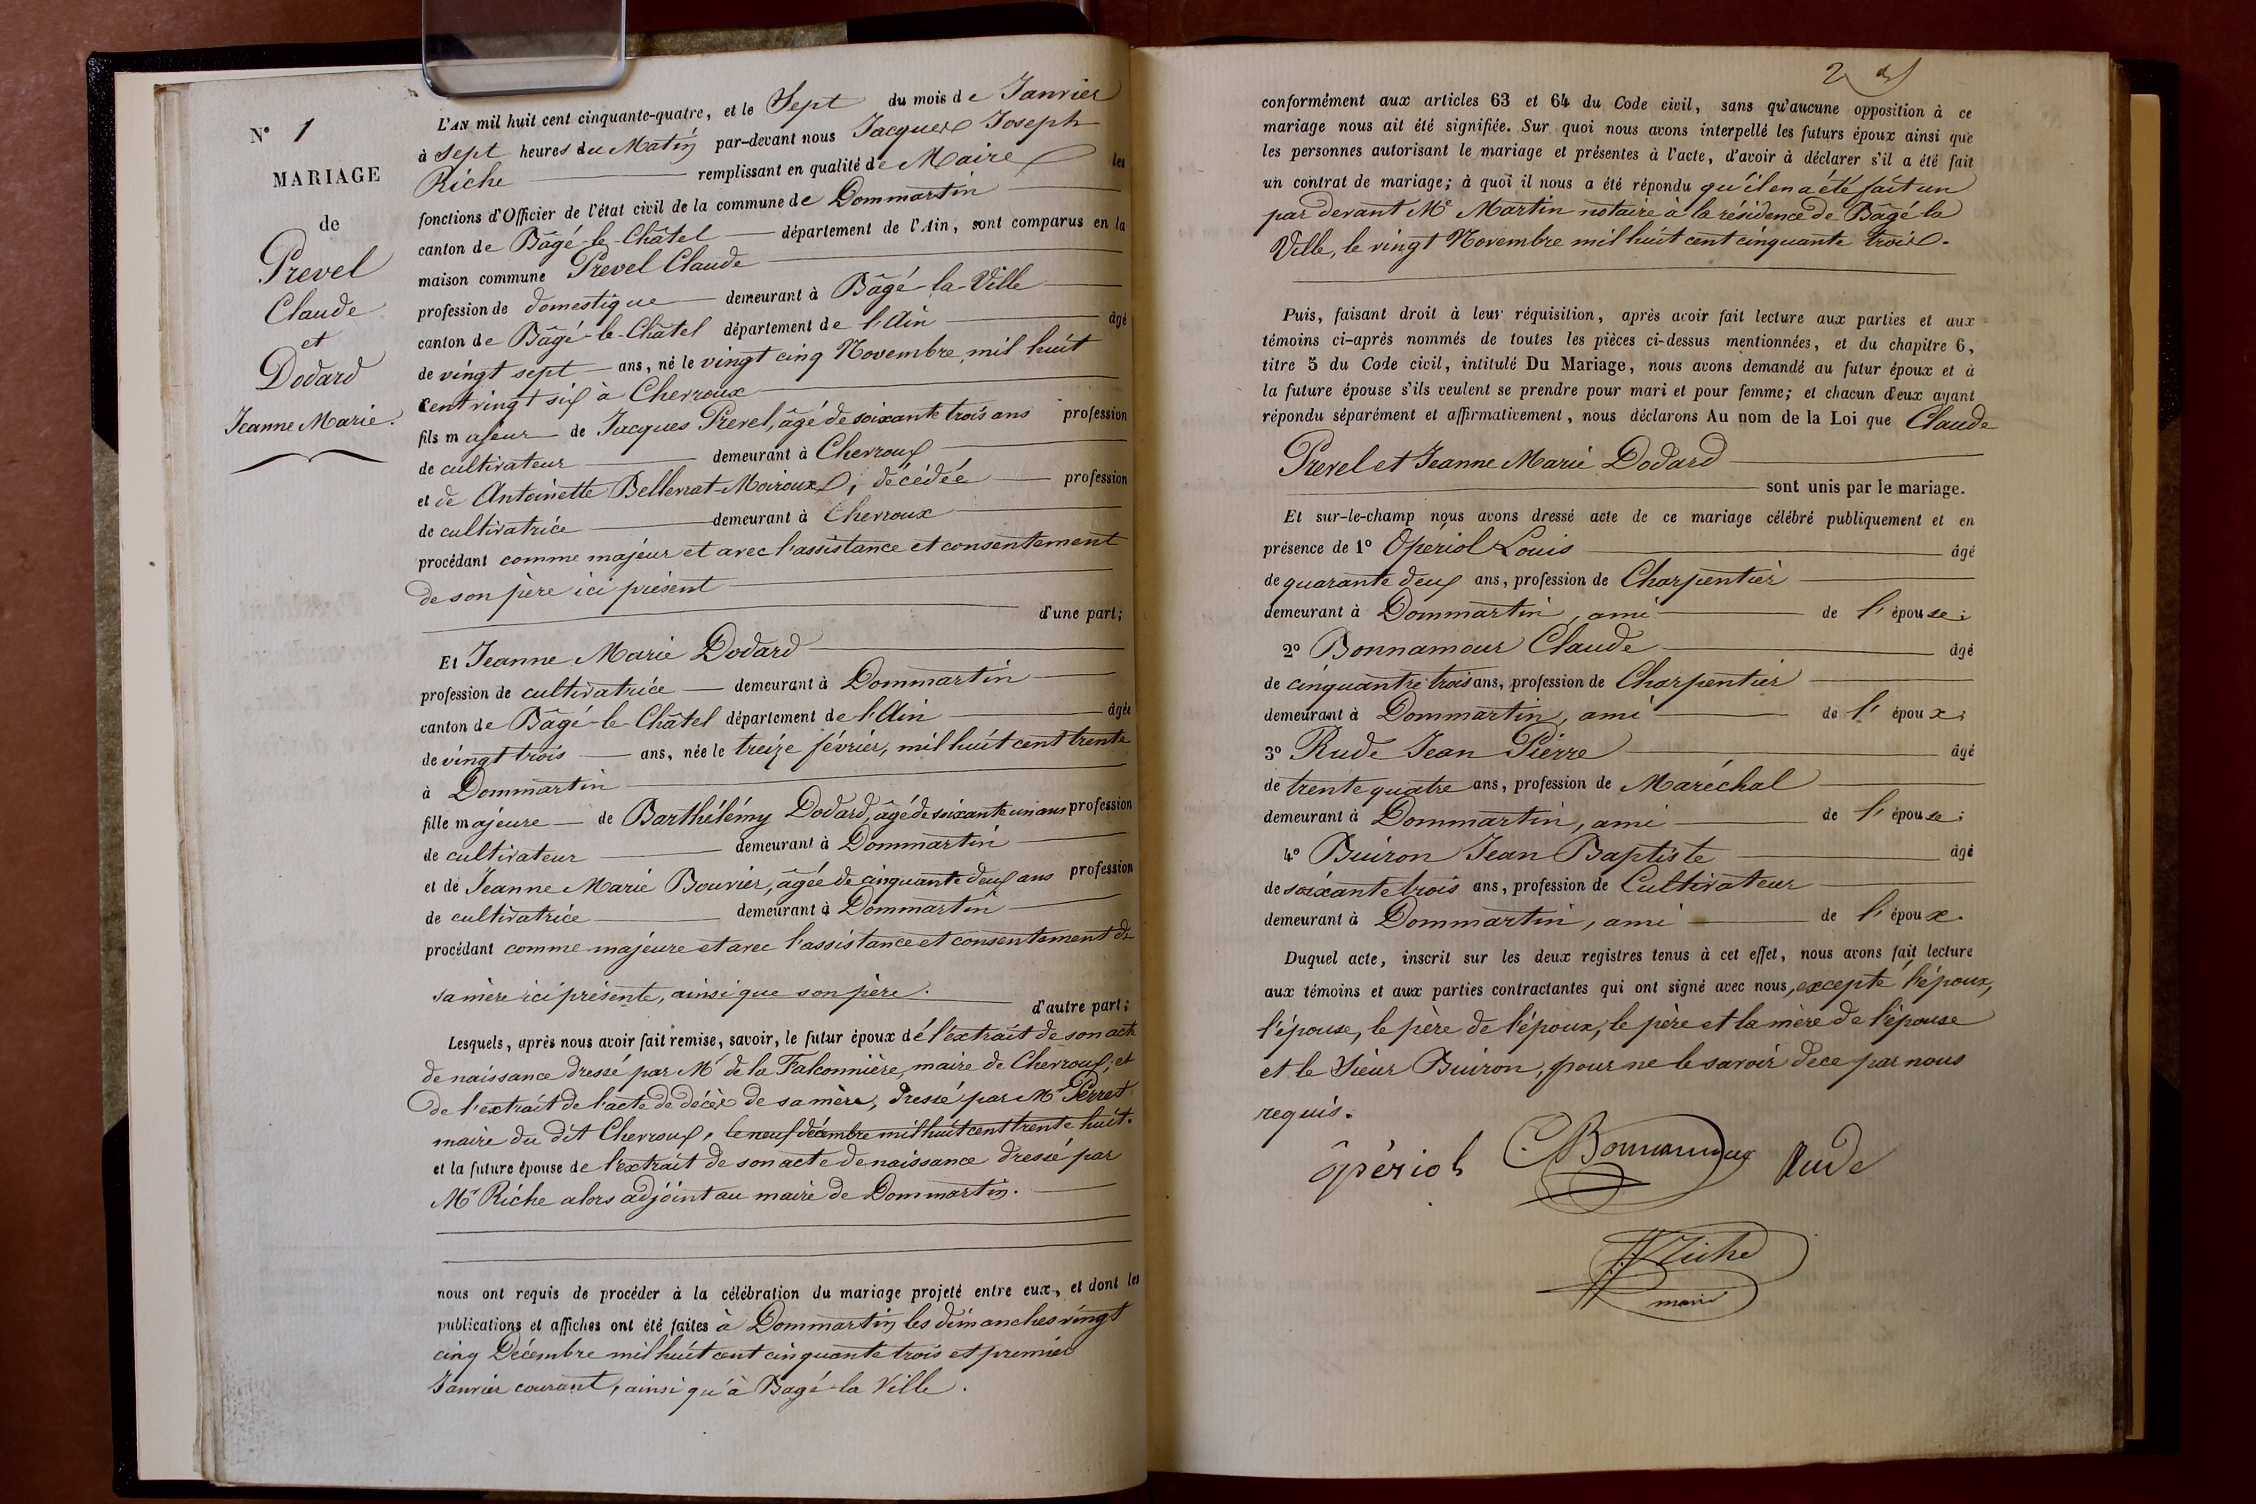 N° 1
MARIAGE
de
Prevel
Claude
et
Dodard
Jeanne Marie.
L'AN mil huit cent cinquante-quatre, et le Sept du mois de Janvier
à sept heures du Matin par-devant nous Jacques Joseph
Riche remplissant en qualité de Maire les
fonctions d'Officier de l'état civil de la commune de Dommartin
canton de Bâgé-le-Châtel département de l'Ain, sont comparus en la
maison commune Prevel Claude
profession de domestique demeurant à Bâgé-la-Ville
canton de Bâgé-le-Châtel département de l'Ain âgé
de vingt sept ans, né le vingt cinq Novembre mil huit
cent vingt six à Chevroux
fils majeur de Jacques Prevel, âgé de soixante trois ans profession
de cultivateur demeurant à Chevroux
et de Antoinette Bellevrat-Moiroux, décédée profession
de cultivatrice demeurant à Chevroux
procédant comme majeur et avec l'assistance et consentement
de son père ici présent
d'une part;
Et Jeanne Marie Dodard
profession de cultivatrice demeurant à Dommartin
canton de Bâgé-le-Châtel département de l'Ain âgée
de vingt trois ans, née le treize février, mil huit cent trente
à Dommartin
fille majeure de Barthélémy Dodard, âgé de soixante un ans profession
de cultivateur demeurant à Dommartin
et de Jeanne Marie Bouvier, âgée de cinquante deux ans profession
de cultivatrice demeurant à Dommartin
procédant comme majeure et avec l'assistance et consentement de
sa mère ici présente, ainsi que son père.
d'autre part;
Lesquels, après nous avoir fait remise, savoir, le futur époux de l'extrait de son acte
de naissance dressé par Mr de la Falconnière, maire de Chevroux, et
de l'extrait de l'acte de décès de sa mère, dressé par Mr Perret
maire du dit Chevroux, le neuf décembre mil huit cent trente huit.
et la future épouse de l'extrait de son acte de naissance dressé par
Mr Riche alors adjoint au maire de Dommartin.
nous ont requis de procéder à la célébration du mariage projeté entre eux, et dont les
publications et affiches ont été faites à Dommartin les dimanches vingt
cinq Décembre mil huit cent cinquante trois et premier
Janvier courant, ainsi qu'à Bagé-la Ville.
2
conformément aux articles 63 et 64 du Code civil, sans qu'aucune opposition à ce
mariage nous ait été signifiée. Sur quoi nous avons interpellé les futurs époux ainsi que
les personnes autorisant le mariage et présentes à l'acte, d'avoir à déclarer s'il a été fait
un contrat de mariage; à quoi il nous a été répondu qu'il en a été fait un
par devant Me Martin notaire à la résidence de Bâgé la
Ville, le vingt Novembre mil huit cent cinquante trois.
Puis, faisant droit à leur réquisition, après avoir fait lecture aux parties et aux
témoins ci-après nommés de toutes les pièces ci-dessus mentionnées, et du chapitre 6,
titre 5 du Code civil, intitulé Du Mariage, nous avons demandé au futur époux et à
la future épouse s'ils veulent se prendre pour mari et pour femme; et chacun d'eux ayant
répondu séparément et affirmativement, nous déclarons Au nom de la Loi que Claude
Prevel et Jeanne Marie Dodard
sont unis par le mariage.
Et sur-le-champ nous avons dressé acte de ce mariage célébré publiquement et en
présence de 1° Opériol Louis âgé
de quarante deux ans, profession de Charpentier
demeurant à Dommartin, ami de l'épouse;
2° Bonnamour Claude âgé
de cinquantre trois ans, profession de Charpentier
demeurant à Dommartin, ami de l'époux;
3° Rude Jean Pierre âgé
de trente quatre ans, profession de Maréchal
demeurant à Dommartin, ami de l'épouse;
4° Buiron Jean Baptiste âgé
de soixante trois ans, profession de Cultivateur
demeurant à Dommartin, ami de l'époux.
Duquel acte, inscrit sur les deux registres tenus à cet effet, nous avons fait lecture
aux témoins et aux parties contractantes qui ont signé avec nous, excepté l'époux,
l'épouse, le père de l'époux, le père et la mère de l'épouse
et le Sieur Buiron, pour ne le savoir de ce par nous
requis.
opériol C Bonnamour Rude
JJ Riche
maire